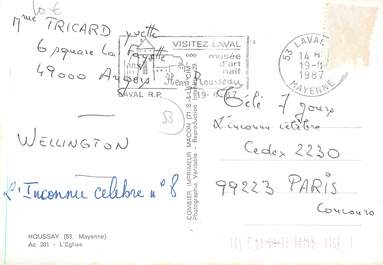 10 €
Mme TRICARD Yvette
6 square la Fayette
49000 Angers
WELLINGTON
L'Inconnu célèbre n° 8
HOUSSAY (53. Mayenne)
Ac 201 - L'Eglise
COMBIER IMPRIMEUR MACON
VISITEZ LAVAL
musée
d'art
naïf
Henri Rousseau
LAVAL R.P.
53 LAVAL
1987
MAYENNE
B
Télé 7 jours
L'inconnu célèbre
Cedex 2230
99223 PARIS
Concours